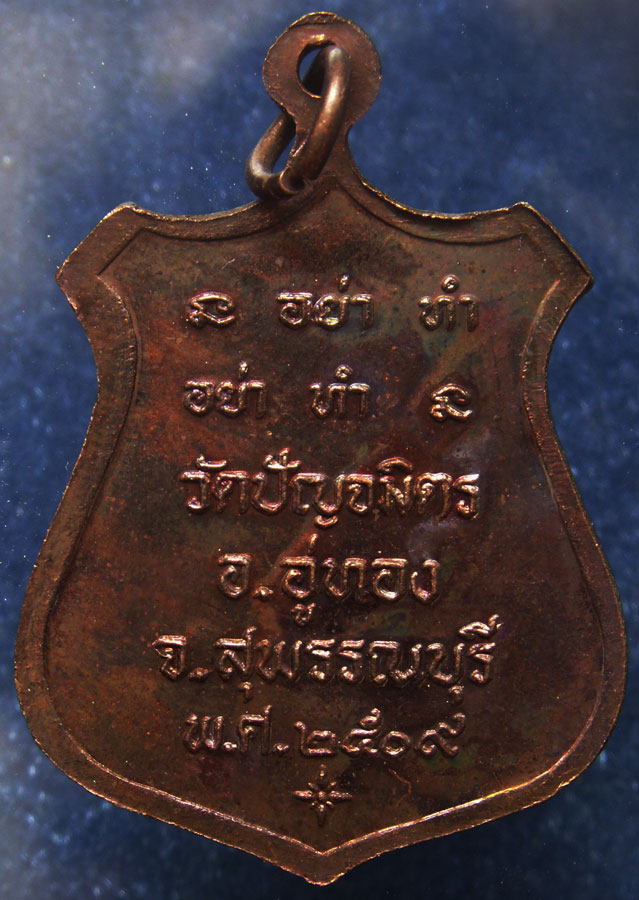 อย่า ทำ
อย่า ทำ
วัดปัญจมิตร
อ.อู่ทอง
จ.สุพรรณบุรี
พ.ศ.๒๕๐๙